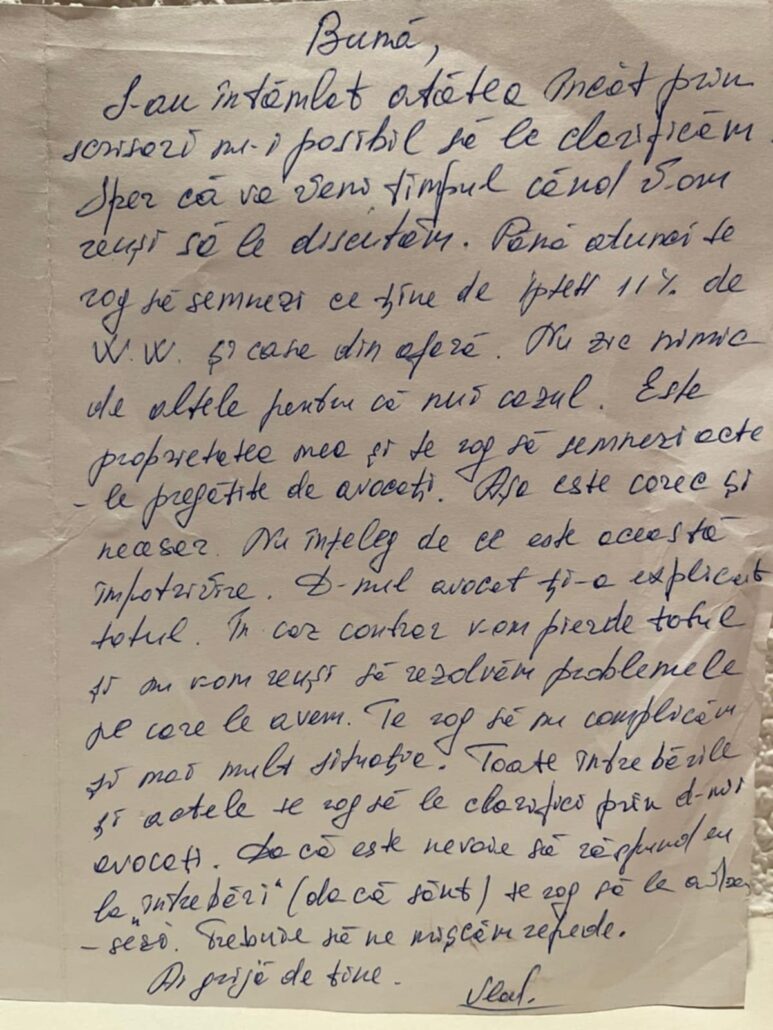 Bună,
S-au întâmlat atâtea încât prin
scrisori nu-i posibil să le clarificăm.
Sper că va veni timpul când v-om
reuși să le discutăm. Până atunci te
rog să semnezi ce ține de 11% de
W.W. și case din afară. Nu zic nimic
de altele pentru că nu-i cazul. Este
proprietatea mea și te rog să semnezi acte
-le pregătite de avocați. Așa este corec și
neasar. Nu înțeleg de ce este această
împotrivire. D-nul avocat ți-a explicat
totul. În caz contrar v-om pierde totul
și nu v-om reuși să rezolvăm problemele
pe care le avem. Te rog să nu complicăm
și mai mult situație. Toate întrebările
și actele te rog să le clarifici prin d-nii
avocați. Dacă este nevoie să răspund eu
la "întrebări" (dacă sânt) te rog să le adre
-sezi. Trebuie să ne mișcăm repede.
Ai grijă de tine.
Vlad.